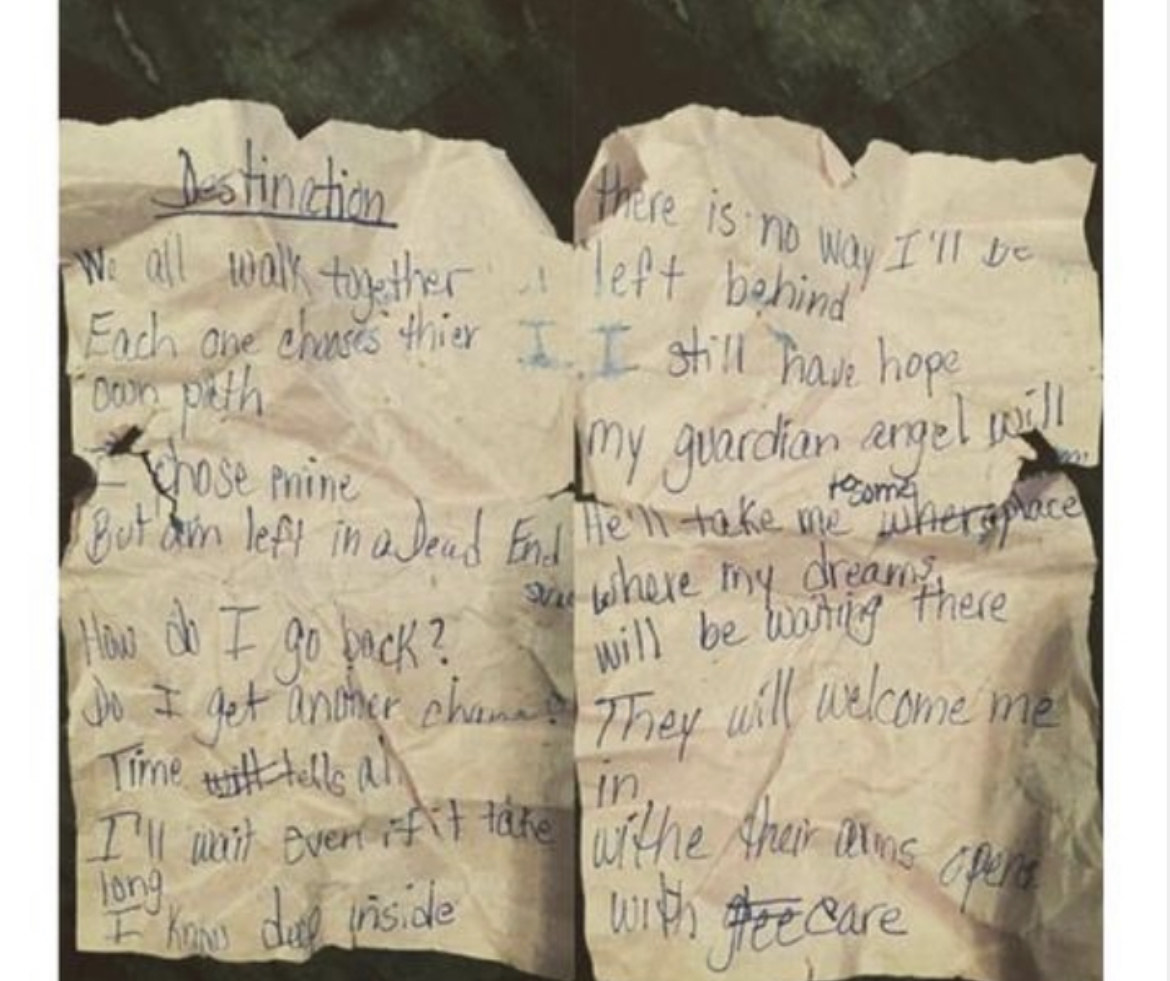 Destination
We all walk together
Each one chooses thier
own path
I chose mine
But am left in a Dead End
How do I go back?
Do I get another
Time will tells all
I'll wait even if it take
long
I know deep inside
there is no way I'll be
left behind
I still have hope
my guardian angel will
to some
He'll take me where place
where my dreams
will be waiting there
They will welcome me
in
withe their arms open
with care